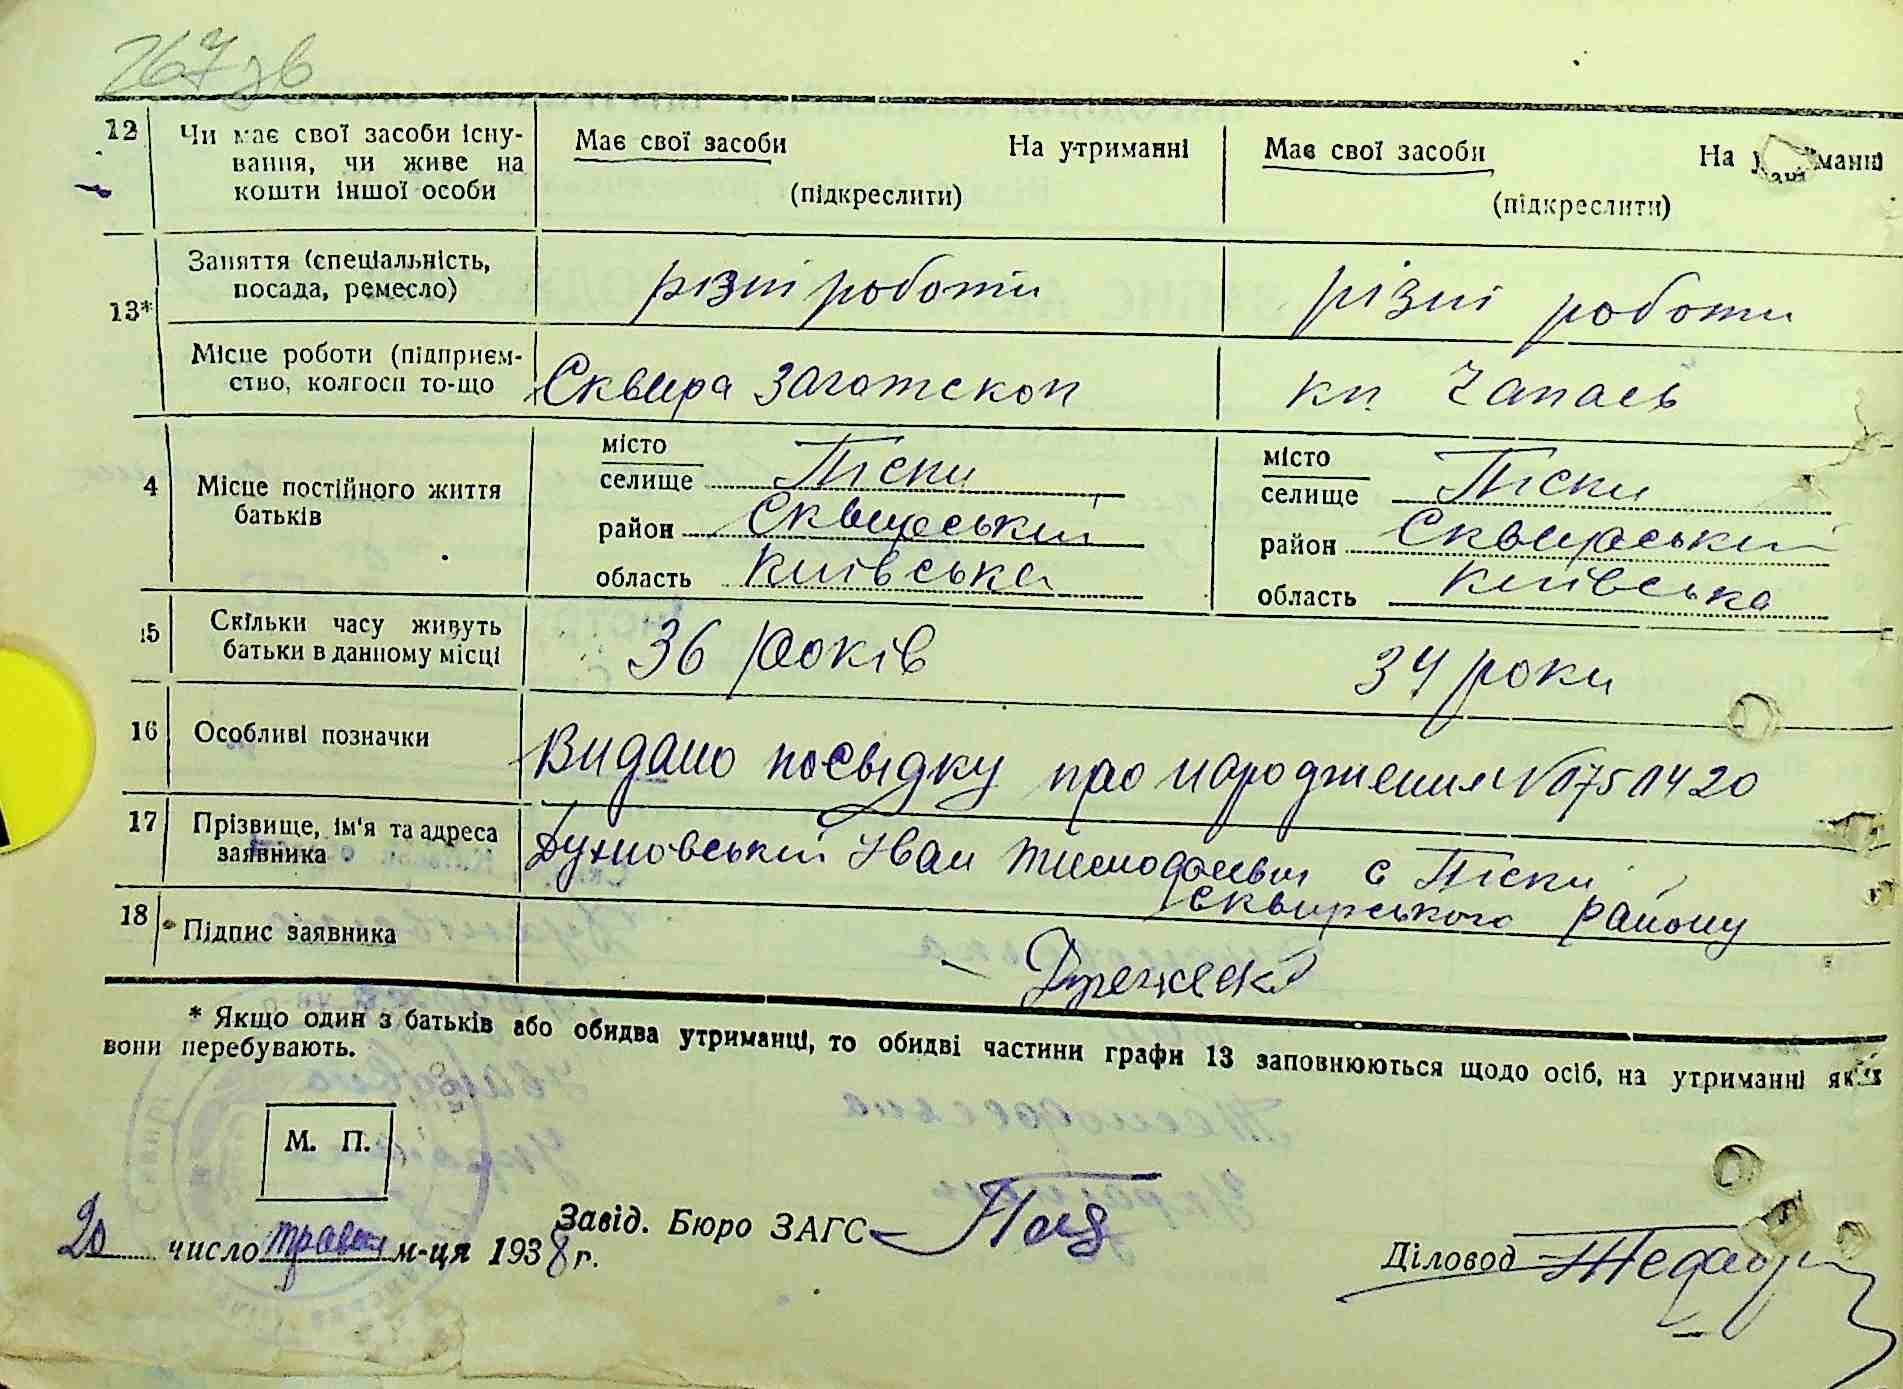 267 зв
12 Чи має свої засоби існу-
вання, чи живе на
кошти іншої особи
Має свої засоби На утриманні
(підкреслити)
Має свої засоби На манні
(підкреслити)
13*
Заняття (спеціальність,
посада, ремесло)
різні роботи
різні роботи
Місце роботи (підприєм-
ство, колгосп то-що
Сквира Заготскот
кп Чапаєв
4 Місце постійного життя
батьків
місто
селище Піски
район Сквирський
область Київська
місто
селище Піски
район Сквирський
область Київська
15 Скільки часу живуть
батьки в данному місці
36 років
34 роки
16 Особливі позначки
Видано посвідку про народження №
17 Прізвище, ім'я та адреса
заявника
Іван с Піски
Сквирського району
18 Підпис заявника
* Якщо один з батьків або обидва утриманці, то обидві частини графи 13 заповнюються щодо осіб, на утриманні яких
вони перебувають.
М. П.
20 число травня м-ця 1938 г.
Завід. Бюро ЗАГС
Діловод